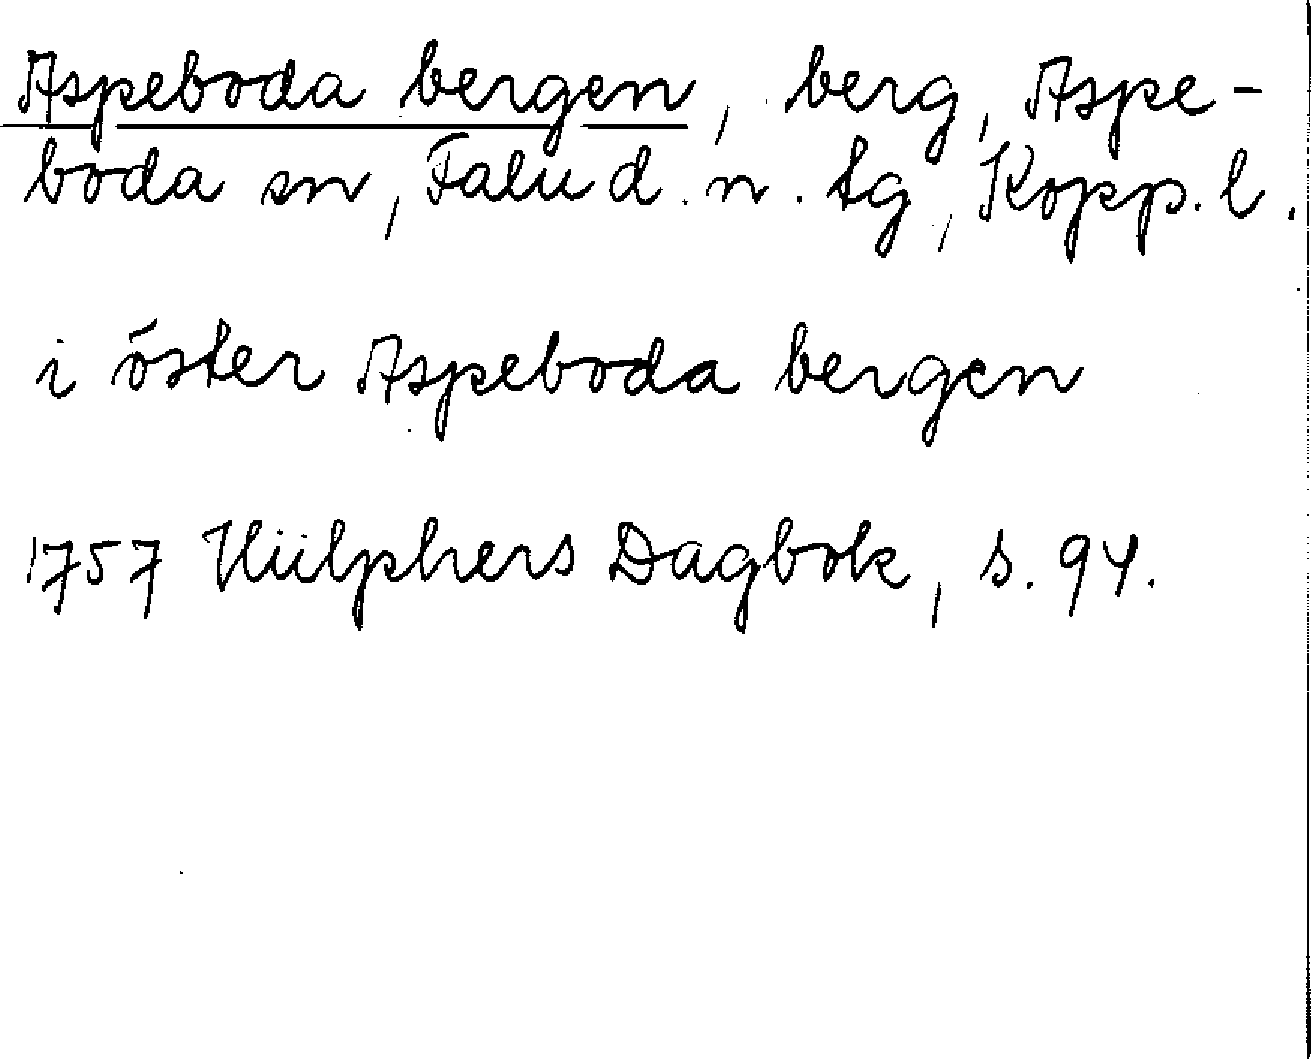 Aspeboda bergen, berg, Aspe-
boda sn, Falu d. n. tg, Kopp. l.
i öster Aspeboda bergen
1757 Hülphers Dagbok, s. 94.